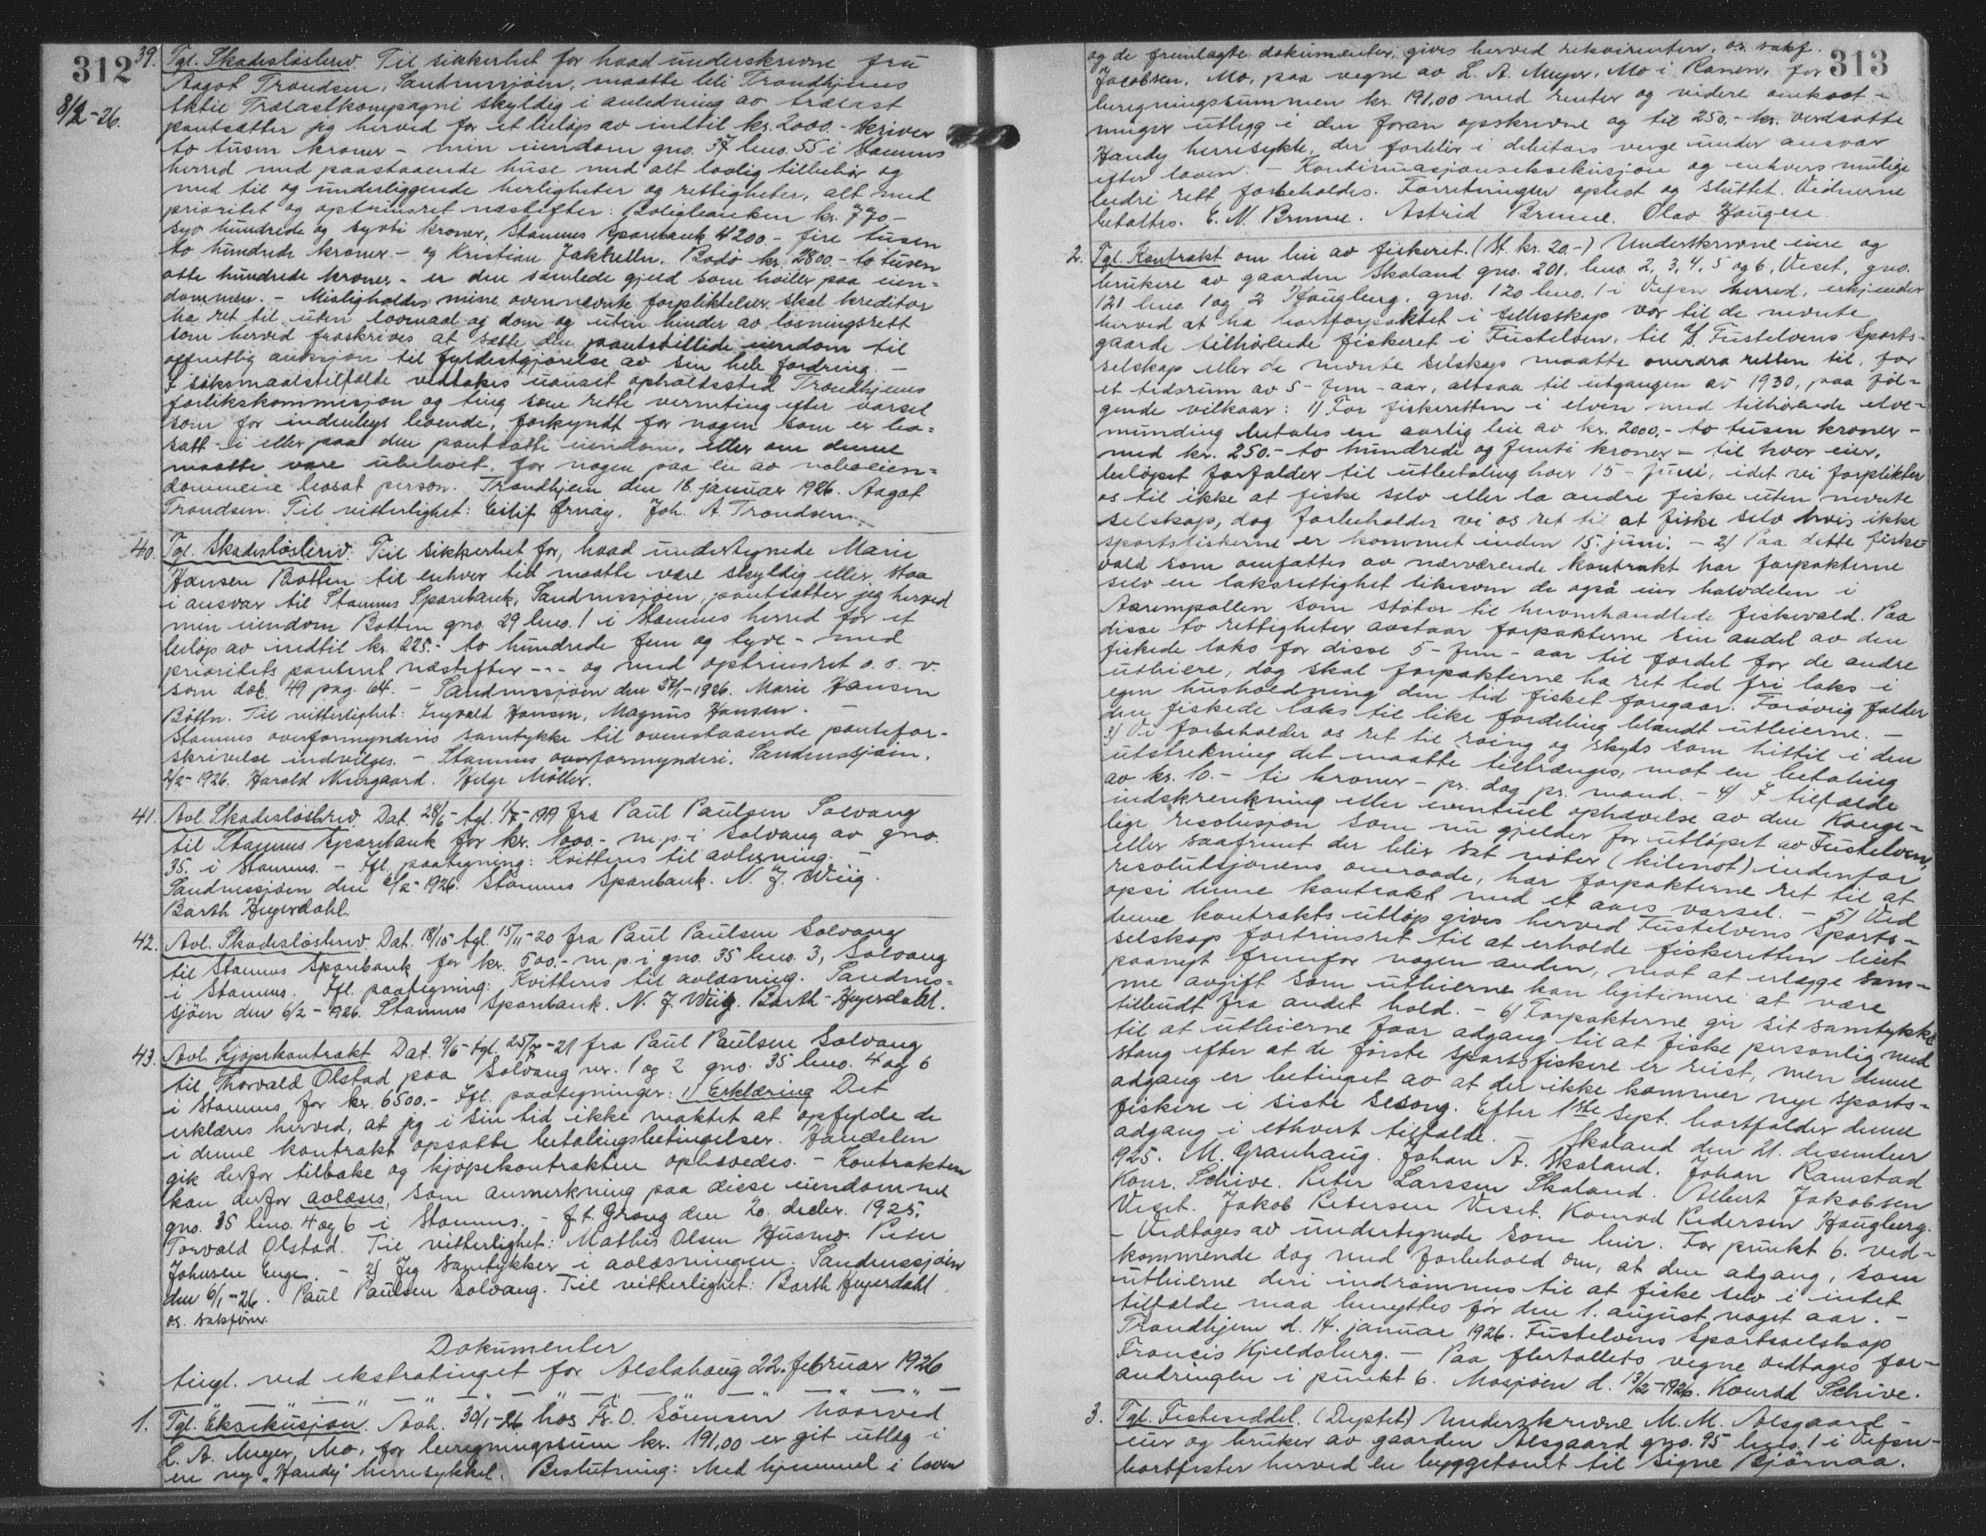 312
8/2-26.
39. Tgl. Skadesløsbrev. Til sikkerhet for hvad underskrevne fru
Aagot Trondsen, Sandnessjøen, maatte bli Trondhjems
Aktie Trælastkompagni skyldig i anledning av trælast
pantsætter jeg herved for et beløp av indtil kr. 2000.- skriver
to tusen kroner - min eiendom gno. 37 bno. 55 i Stamnes
herred med paastaaende huse med alt lovlig tilbehør og
med til og underliggende herligheter og rettigheter, alt med
prioritet og optrinsret næstefter: Boligbanken kr. 770.-
syv hundrede og sytti kroner, Stamnes Sparebank 4200.- fire tusen
to hundrede kroner - og Kristian Jakhelln, Bodø kr. 2800.- to tusen
otte hundrede kroner - er den samlede gjeld som heiler paa eien-
dommen. - Misligholdes mine ovennevnte forpliktelser skal kreditor
ha ret til uten lovmaal og dom og uten hinder av løsningsrett
som herved fraskrives at sætte den pantstillede eiendom til
offentlig auksjon til fyldestgjørelse av sin hele fordring. -
I søksmaalstilfælde vedtakes uanset opholdssted Trondhjems
forlikskommisjon og ting som rette verneting efter varsel
som for indenbys boende, forkyndt for nogen som er bo-
satt i eller paa den pantsatte eiendom, eller om denne
maatte være ubeboet, for nogen paa en av naboeien-
dommene bosat person. Trondhjem den 18 januar 1926. Aagot
Trondsen. Til vitterlighet: Eilif Ernay. Joh. A. Trondsen.
40. Tgl. Skadesløsbrev. Til sikkerhet for, hvad undertegnede Marie
Hansen Botten til enhver tid maatte være skyldig eller staa
i ansvar til Stamnes Sparebank, Sandnessjøen, pantsætter jeg herved
min eiendom Botten gno. 29 bno. 1 i Stamnes herred for et
beløp av indtil kr. 225.- to hundrede fem og tyve - med
prioritets panteret næstefter --- og med optrinsret o.s.v.
som dok. 49 pag 64. - Sandnessjøen den /1-1926. Marie Hansen
Botten. Til vitterlighet: Ingvald Hansen, Magnus Hansen. -
Stamnes overformynderis samtykke til ovenstaaende pantefor-
skrivelse indvilges. - Stamnes overformynderi. Sandnessjøen,
2/2-1926. Harald Nergaard. Helge Møller.
41. Avl. Skadesløsbrev. Dat. 28/6- tgl. 1/7-1919 fra Paul Paulsen Solvang
til Stamnes Sparebank for kr. 1000.- m.p. i Solvang av gno.
35. i Stamnes. - Ifl. paategning: Kvitteres til avlesning. -
Sandnessjøen den 6/2-1926. Stamnes Sparebank. N. J. Wiig.
Barth Heyerdahl.
42. Avl. Skadesløsbrev. Dat. 18/10 tgl. 15/11-20 fra Paul Paulsen Solvang
til Stamnes Sparebank for kr. 500.- m.p. i gno. 35 bno. 3, Solvang
i Stamnes. Ifl. paategning: Kvitteres til avlesning. Sandnes-
sjøen den 6/2-1926. Stamnes Sparebank. N. J. Wiig. Barth-Heyerdahl.
43. Avl. Kjøpekontrakt. Dat. 9/6- tgl. 25/7-21 fra Paul Paulsen Solvang
til Thorvald Olstad paa Solvang nr. 1 og 2 gno. 35 bno. 4 og 6
i Stamnes for kr. 6500.- Ifl. paategninger: 1) Erklæring Det
erklæres herved, at jeg i sin tid ikke maktet at opfylde de
i denne kontrakt opsatte betalingsbetingelser. Handelen
gik derfor tilbake og kjøpekontrakten ophevedes. - Kontrakten
kan derfor avleses, som anmerkning paa disse eiendomme
gno. 35 bno. 4 og 6 i Stamnes. - f.t. Grong den 20. decbr. 1925.
Torvald Olstad. Til vitterlighet: Mathis Olsen Husmo. Peter
Johnsen Enge. - 2) Jeg samtykker i avlesningen. Sandnessjøen
den 6/1-26. Paul Paulsen Solvang. Til vitterlighet: Barth Heyerdahl
os. sakfører.
Dokumenter
tingl. ved ekstratinget for Alstahaug 22. februar 1926
1. Tgl. "Eksekusjon". Avh. 30/1-26 hos Fr. O. Sørensen
L. A. Meyer, Mo, for beregningssum kr. 191,00 er git utleg i
en ny "Handy" herresykkel. Beslutning: Med hjemmel i loven
313
og de fremlagte dokumenter, gives herved rekvirenten, os. sakf.
Jacobsen, Mo, paa vegne av L. A. Meyer, Mo i Ranen, for
beregningssummen kr. 191,00 med renter og videre omkost-
ninger utlegg i den foran opskrevne og til 250.- kr. verdsatte
Handy herresykle, der forblir i debitors verge under ansvar
efter loven. - Kontinuasjonseksekusjon og enhver mulige
bedre rett forbeholdes. Forretningen oplest og sluttet. Vidnerne
betaltes. E. N. Brunne. Astrid Brunne. Olav Haugen.
2. Tgl. Kontrakt om leie av fiskeret. (St. kr. 20.-) Underskrevne eiere og
brukere av gaarden Skaland gno. 201, bno. 2, 3, 4, 5 og 6, Veset, gno.
121 bno. 1 og 2 Haugberg, gno. 120 bno. 1 i Vefsn herred, erkjender
herved at ha bortforpaktet i fellesskap vor til de nevnte
gaarde tilhørende fiskeret i Fustelven, til Y Fustelvens Sports-
selskap eller de nevnte selskap maatte overdra retten til, for
et tidsrum av 5 - fem - aar, altsaa til utgangen av 1930, paa føl-
gende vilkaar: 1) For fiskeretten i elven med tilhørende elve-
munding betales en aarlig leie av kr. 2000.- to tusen kroner -
med kr. 250.- to hundrede og femti kroner - til hver eier,
beløpet forfalder til utbetaling hver 15 juni, idet vi forplikter
os til ikke at fiske selv eller la andre fiske uten nevnte
selskap, dog forbeholder vi os ret til at fiske selv hvis ikke
sportsfiskerne er kommet inden 15 juni. - 2) Paa dette fiske-
vald som omfattes av nærværende kontrakt har forpakterne
selv en laksrettighet likesom de også eier halvdelen i
Aaremspollen som støter til heromhandlede fiskevald. Paa
disse to rettigheter avstaar forpakterne sin andel av den
fiskede laks for disse 5 - fem - aar til fordel for de andre
utleiere, dog skal forpakterne ha ret til fri laks i
egen husholdning den tid fisket foregaar. Forøvrig falder
den fiskede laks til like fordeling blandt utleierne. -
3) Vi forbeholder os ret til roing og skyds som hittil i den
utstrekning det maatte tiltrænges, mot en betaling
av kr. 10.- ti kroner - pr. dag pr. mand. - 4) I tilfælde
indskrenkning eller eventuel ophævelse av den Konge-
lige resolusjon som nu gjelder for utløpet av Fustelven,
eller saafremt der blir sat nøter (kilenot) indenfor
resolutsjonens omraade, har forpakterne ret til at
opsi denne kontrakt med et aars varsel. - 5) Ved
denne kontrakts utløp gives herved Fustelvens Sports-
selskap fortrinsret til at erholde fiskeretten leiet
paanyt fremfor nogen anden, mot at erlægge sam-
me avgift som utleierne kan legitimere at være
tilbudt fra andet hold. - 6) Forpakterne gir sit samtykke
til at utleierne faar adgang til at fiske personlig med
stang efter at de første sportsfiskere er reist, men denne
adgang er betinget av at der ikke kommer nye sports-
fiskere i siste sesong. Efter 1ste Sept. bortfalder denne
adgang i ethvert tilfælde. - Skaland den 21. desember
925. M. Granhaug. Johan A. Skaland. Johan Ramstad
Konr. Schive. Peter Larssen Skaland. Albert Jakobsen
Veset. Jakob Petersen Veset. Konrad Pedersen Haugberg.
- Vedtages av undertegnede som leier. For punkt 6. ved-
kommende dog med forbehold om, at den adgang, som
utleierne deri indrømmes til at fiske selv i intet
tilfælde maa benyttes før den 1. august noget aar. -
Trondhjem d. 14. januar 1926. Fustelvens Sportsselskap
Francis Kjeldsberg. - Paa flertallets vegne vedtages for-
andringen i punkt 6. Mosjøen d. 13/2-1926. Konrad Schive.
3. Tgl. Festeseddel. (Duplet) Underskrevne M. M. Alsgaard -
eier og bruker av gaarden Alsgaard gno. 95 bno. 1 i Vefsn -
bortfester herved en byggetomt til Signe Bjørnaa.